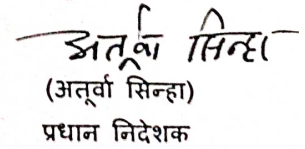 अतूर्वा सिन्हा
(अतूर्वा सिन्हा)
प्रधान निदेशक